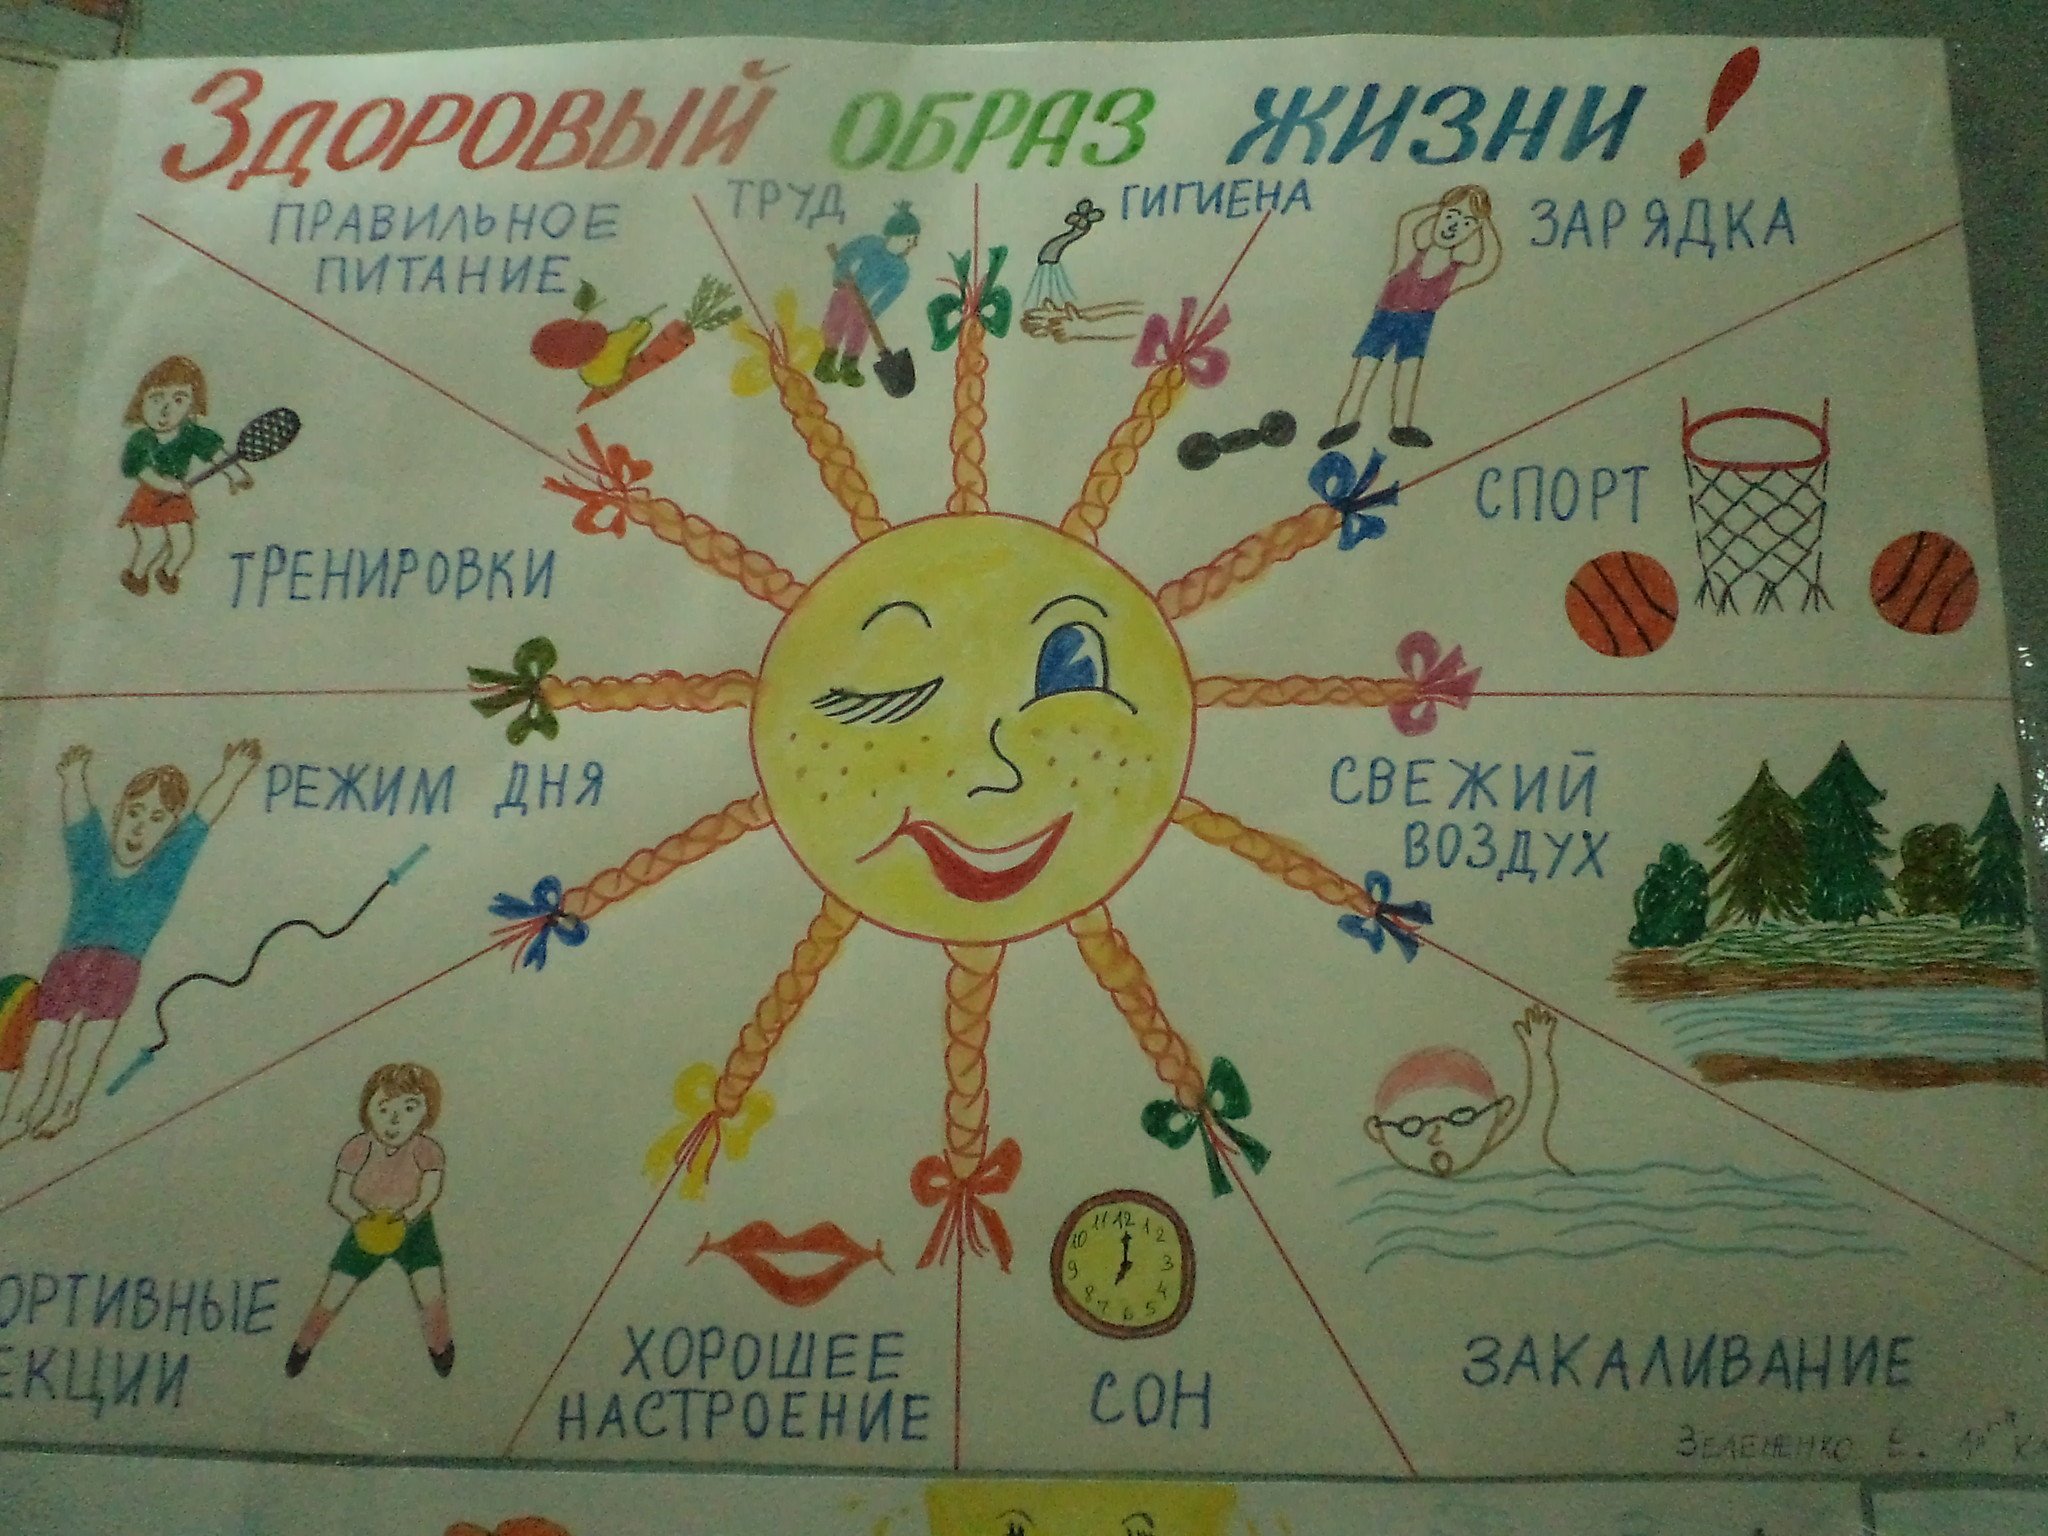 ЗДОРОВЫЙ ОБРАЗ ЖИЗНИ!
ПРАВИЛЬНОЕ
ПИТАНИЕ
ТРУД
ГИГИЕНА
ЗАРЯДКА
СПОРТ
ТРЕНИРОВКИ
РЕЖИМ ДНЯ
СВЕЖИЙ
ВОЗДУХ
ОРТИВНЫЕ
ЕКЦИИ
ХОРОШЕЕ
НАСТРОЕНИЕ
11 12 1
10 2
9 3
8 4
7 6 5
СОН
ЗАКАЛИВАНИЕ
ЗЕЛЕНЕНКО Е.